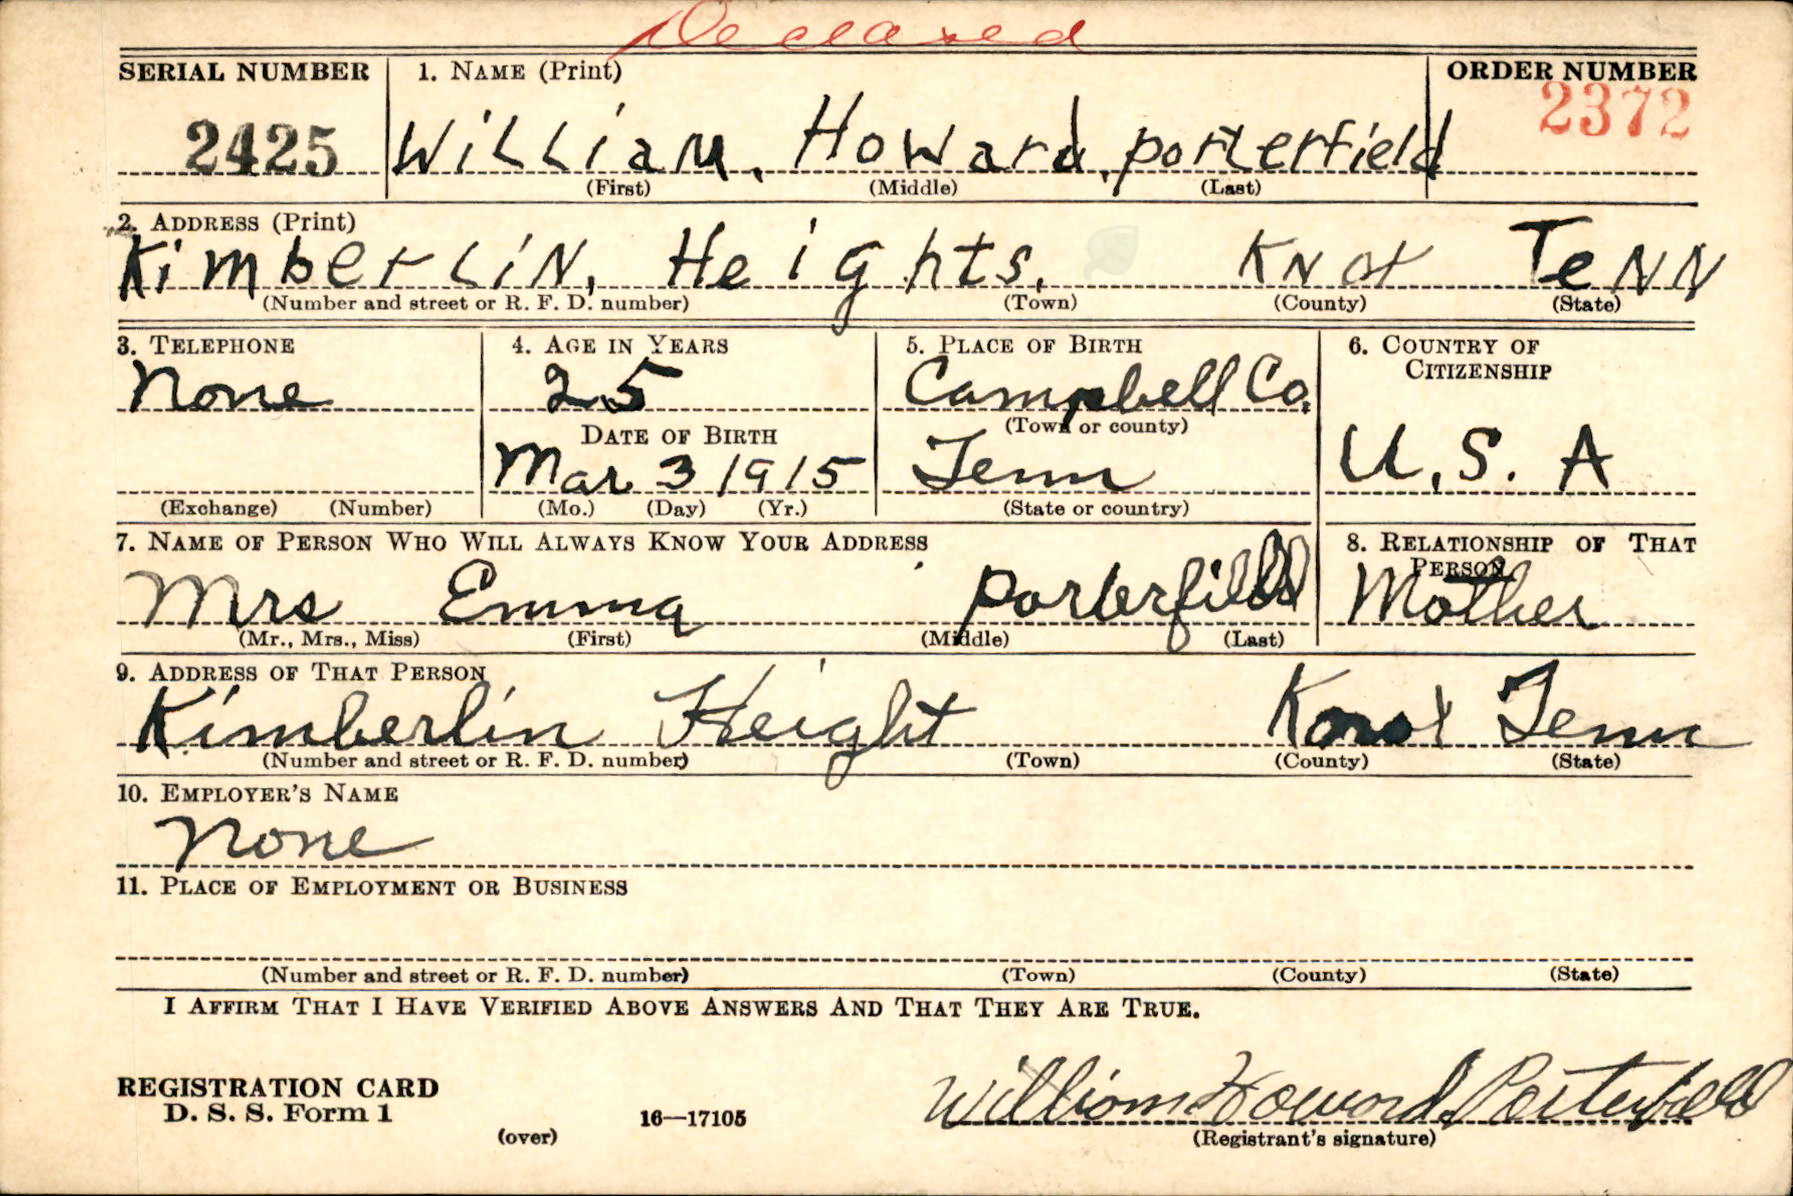 Deceased
SERIAL NUMBER 1. NAME (Print) ORDER NUMBER
2425 William, Howard, porterfield 2372
(First) (Middle) (Last)
2. ADDRESS (Print)
Kimberlin, Heights, Knox Tenn
(Number and street or R. F. D. number) (Town) (County) (State)
3. TELEPHONE 4. AGE IN YEARS 5. PLACE OF BIRTH 6. COUNTRY OF
CITIZENSHIP
None 25 Campbell Co.
(Town or county)
DATE OF BIRTH
Mar 3 1915 Tenn U.S. A
(Exchange) (Number) (Mo.) (Day) (Yr.) (State or country)
7. NAME OF PERSON WHO WILL ALWAYS KNOW YOUR ADDRESS 8. RELATIONSHIP OF THAT
PERSON
Mrs Emma Porterfield Mother
(Mr., Mrs., Miss) (First) (Middle) (Last)
9. ADDRESS OF THAT PERSON
Kimberlin Height Knox Tenn
(Number and street or R. F. D. number) (Town) (County) (State)
10. EMPLOYER'S NAME
None
11. PLACE OF EMPLOYMENT OR BUSINESS
(Number and street or R. F. D. number) (Town) (County) (State)
I AFFIRM THAT I HAVE VERIFIED ABOVE ANSWERS AND THAT THEY ARE TRUE.
REGISTRATION CARD
D. S. S. Form 1
(over) 16—17105
William Howard Porterfield
(Registrant's signature)